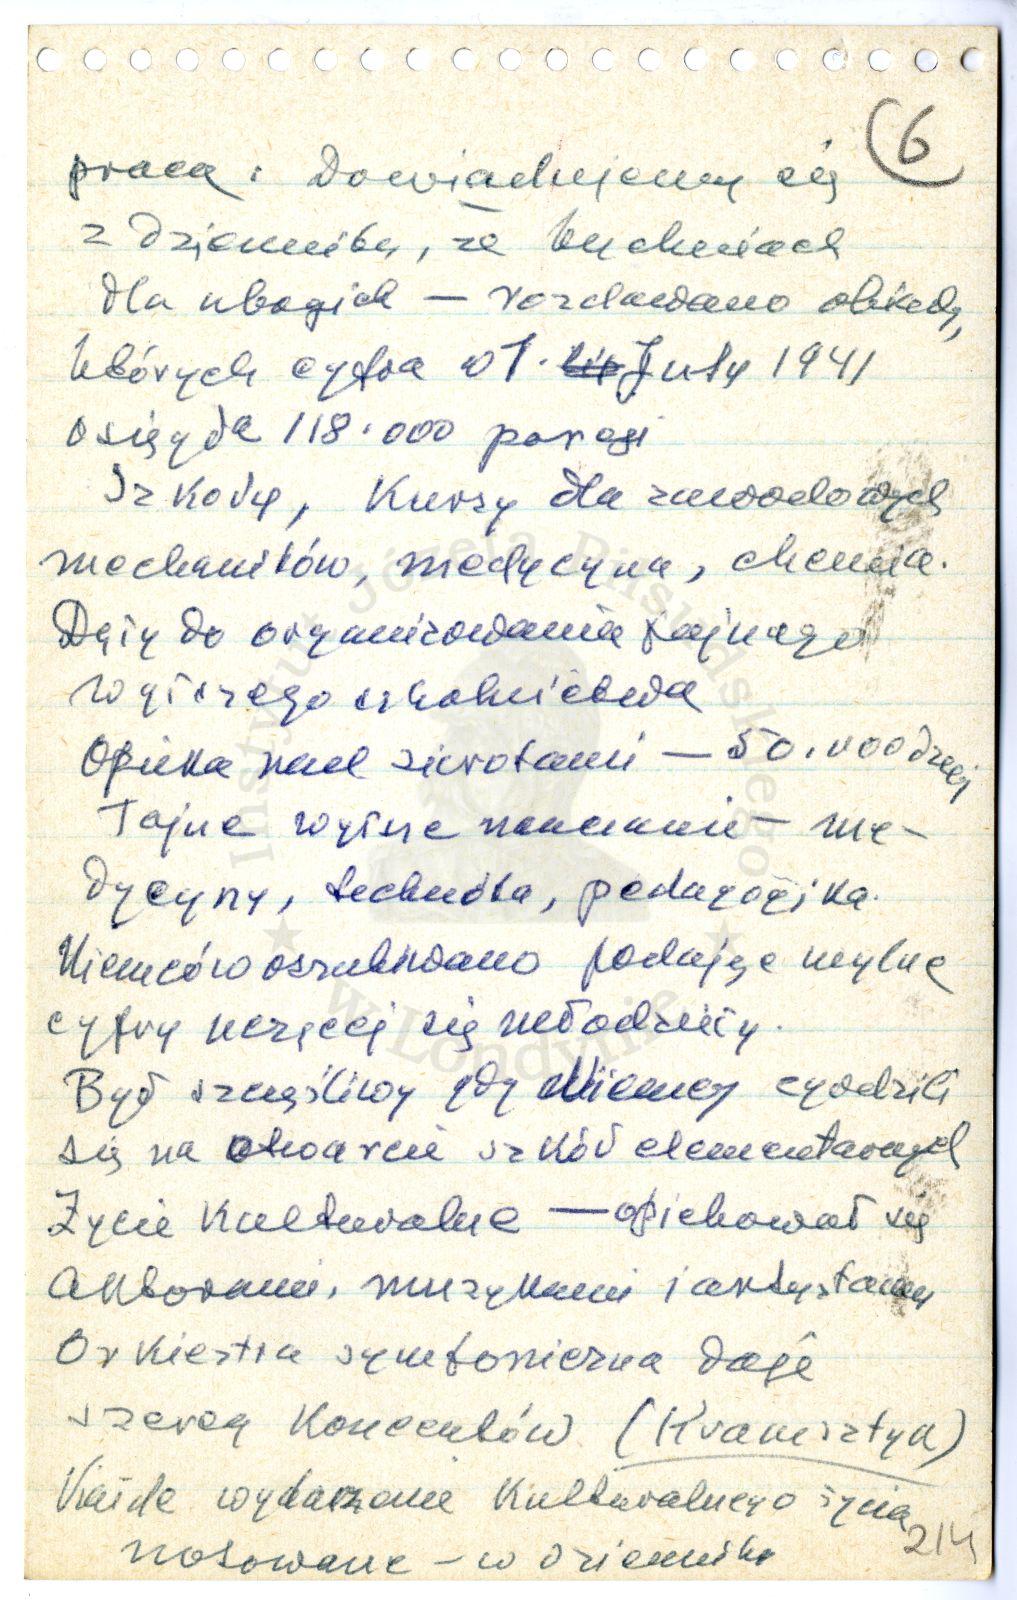 6
pracą. Dowiadujemy się
z dziennika, że kuchniach
dla ubogich — rozdawano obiady,
których cyfra w July 1941
osięgła 118.000 porcji
Szkoły, Kursy dla zawodowych
mechaników, medycyna, chemia.
Dąży do organizowania tajnego
wyższego szkolnictwa
Opieka nad sierotami — 50.000 dzieci
Tajne wyższe nauczanie — me-
dycyny, technika, pedagogika.
Niemców oszukiwano podając mylne
cyfry uczącej się młodzieży.
Był szczęśliwy gdy Niemcy zgodzili
się na otwarcie szkół elementarnych
Życie Kulturalne — opiekował się
Aktorami, muzykami i artystami
Orkiestra symfoniczna daje
szereg Koncertów (Kramsztyk)
Każde wydarzenie Kulturalnego życia
notowane — w dzienniku
214
Instytut Józefa Piłsudskiego
w Londynie